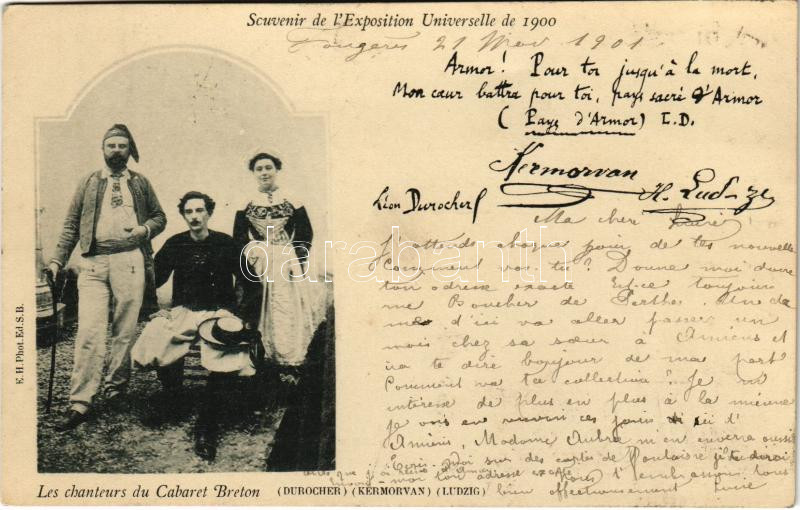 Souvenir de l'Exposition Universelle de 1900
Fougères 21 Mai 1901
Armor! Pour toi jusqu'à la mort,
Mon cœur battra pour toi, pays sacré d'Armor
(Pays d'Armor) L.D.
Kermorvan
Léon Durocher H. Ludzig
Ma chère
J'attends chaque jour de tes nouvelles
Comment vas tu? Donne moi donc
ton adresse exacte Est-ce toujours
rue Boucher de Perthe. Une da
me d'ici va aller passer un
mois chez sa sœur à Amiens et
ira te dire bonjour de ma part
Comment va ta collection? Je m'
intéresse de plus en plus à la mienne
je ces jours ici d'
Amiens, Madame Aubre m'en enverra aussi
Ecris-moi sur des cartes de
moi ton adresse exacte Nous t'embrassons tous
bien affectueusement Lucie
E.H.Phot.Ed.S.B.
Les chanteurs du Cabaret Breton (DUROCHER) (KERMORVAN) (LUDZIG)
darabanth